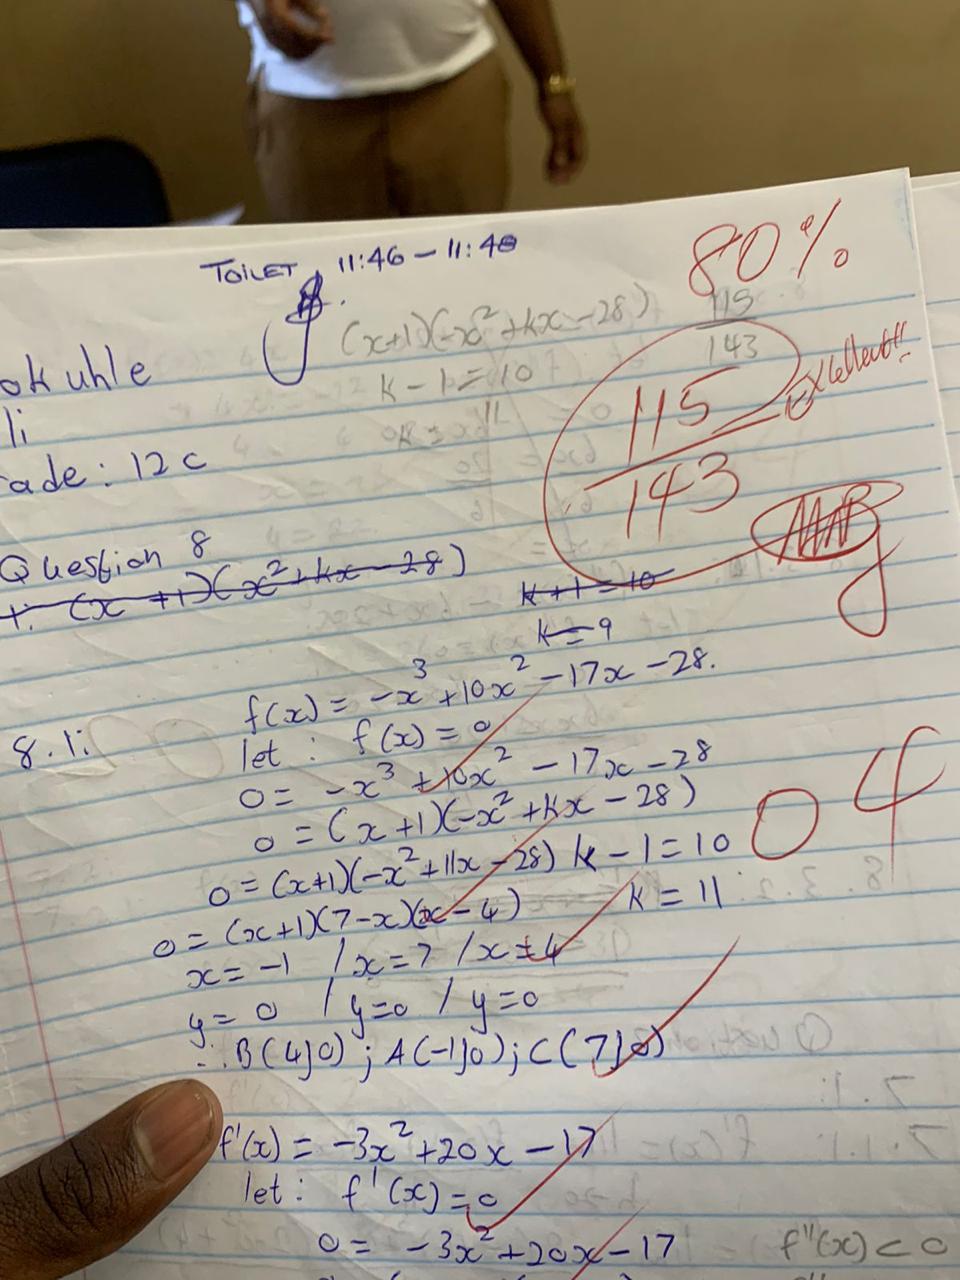 80%
TOILET 11:46 - 11:48
(x+1)(-x²+kx-28)
115
143
k-1=10
115
143
Excellent!!
okuhle
li
ade: 12c
Question 8
(x+1)(x²+kx-28)
k+1=10
k=9
f(x) = -x³+10x²-17x-28.
8.1:
let: f(x)=0
0 = -x³+10x²-17x-28
0 = (x+1)(-x²+kx-28)
04
0 = (x+1)(-x²+11x-28) k-1=10
0 = (x+1)(7-x)(x-4) k=11
x=-1 / x=7 / x=4
y=0 / y=0 / y=0
∴ B(4;0); A(-1;0); C(7;0)
f'(x) = -3x²+20x-17
let: f'(x)=0
0 = -3x²+20x-17 f''(x)<0